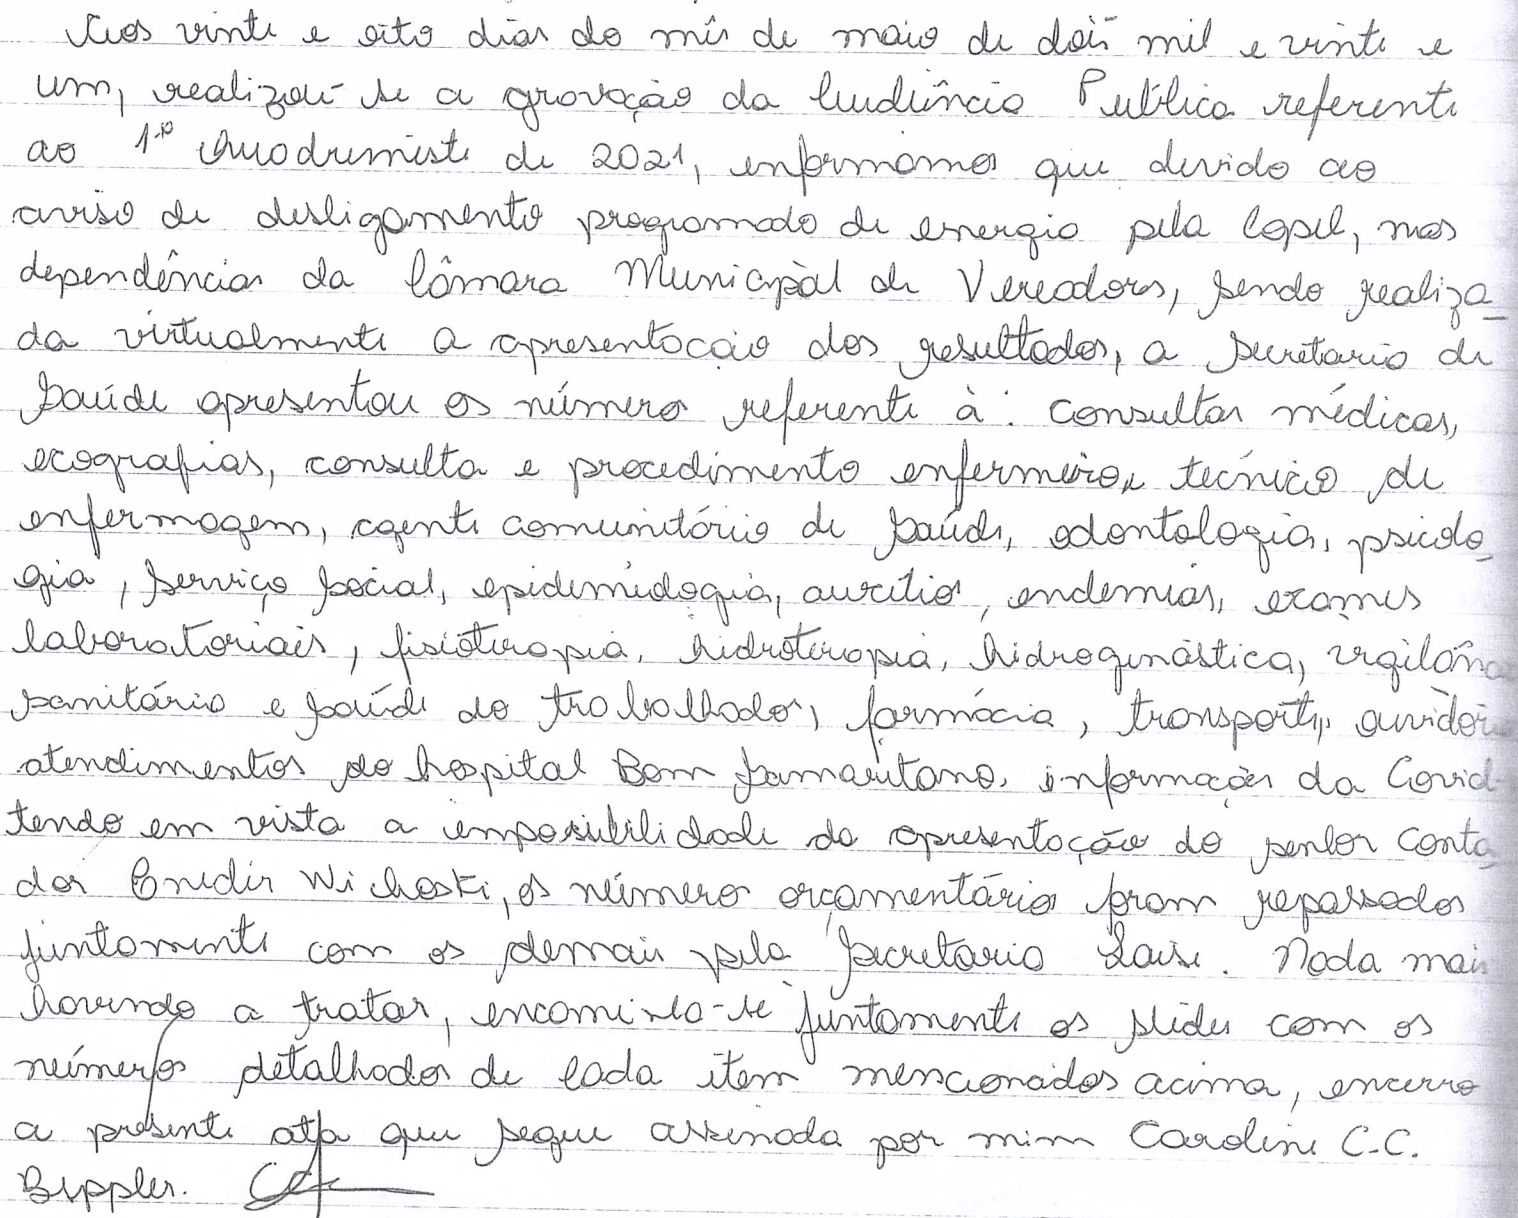 Aos vinte e oito dias do mês de maio de dois mil e vinte e
um, realizou-se a gravação da Audiência Pública referente
ao 1º Quadrimestre de 2021, informamos que devido ao
aviso de desligamento programado de energia pela Copel, nas
dependências da Câmara Municipal de Vereadores, sendo realiza_
da virtualmente a apresentação dos resultados, a secretaria de
saúde apresentou os número referente à: consultas médicas,
ecografias, consulta e procedimento enfermeiro, tecnico de
enfermagem, agente comunitário de saúde, odontologia, psicolo_
gia, serviço social, epidemiologia, auxilio, endemias, exames
laboratoriais, fisioterapia, hidroterapia, hidroginástica, vigilânc
sanitário e saúde do trabalhador, farmácia, transporte, ouvidor
atendimentos do hospital Bom Samaritano, informações da Covid-
tendo em vista a impossibilidade da apresentação do senhor conta_
dor Enedir Wichoski, os número orçamentário foram repassados
juntamente com os demais pela secretaria Laise. Nada mais
havendo a tratar, encaminha-se juntamente os slides com os
números detalhados de cada item mencionados acima, encerro
a presente ata que segue assinada por mim Caroline C.C.
Beppler.